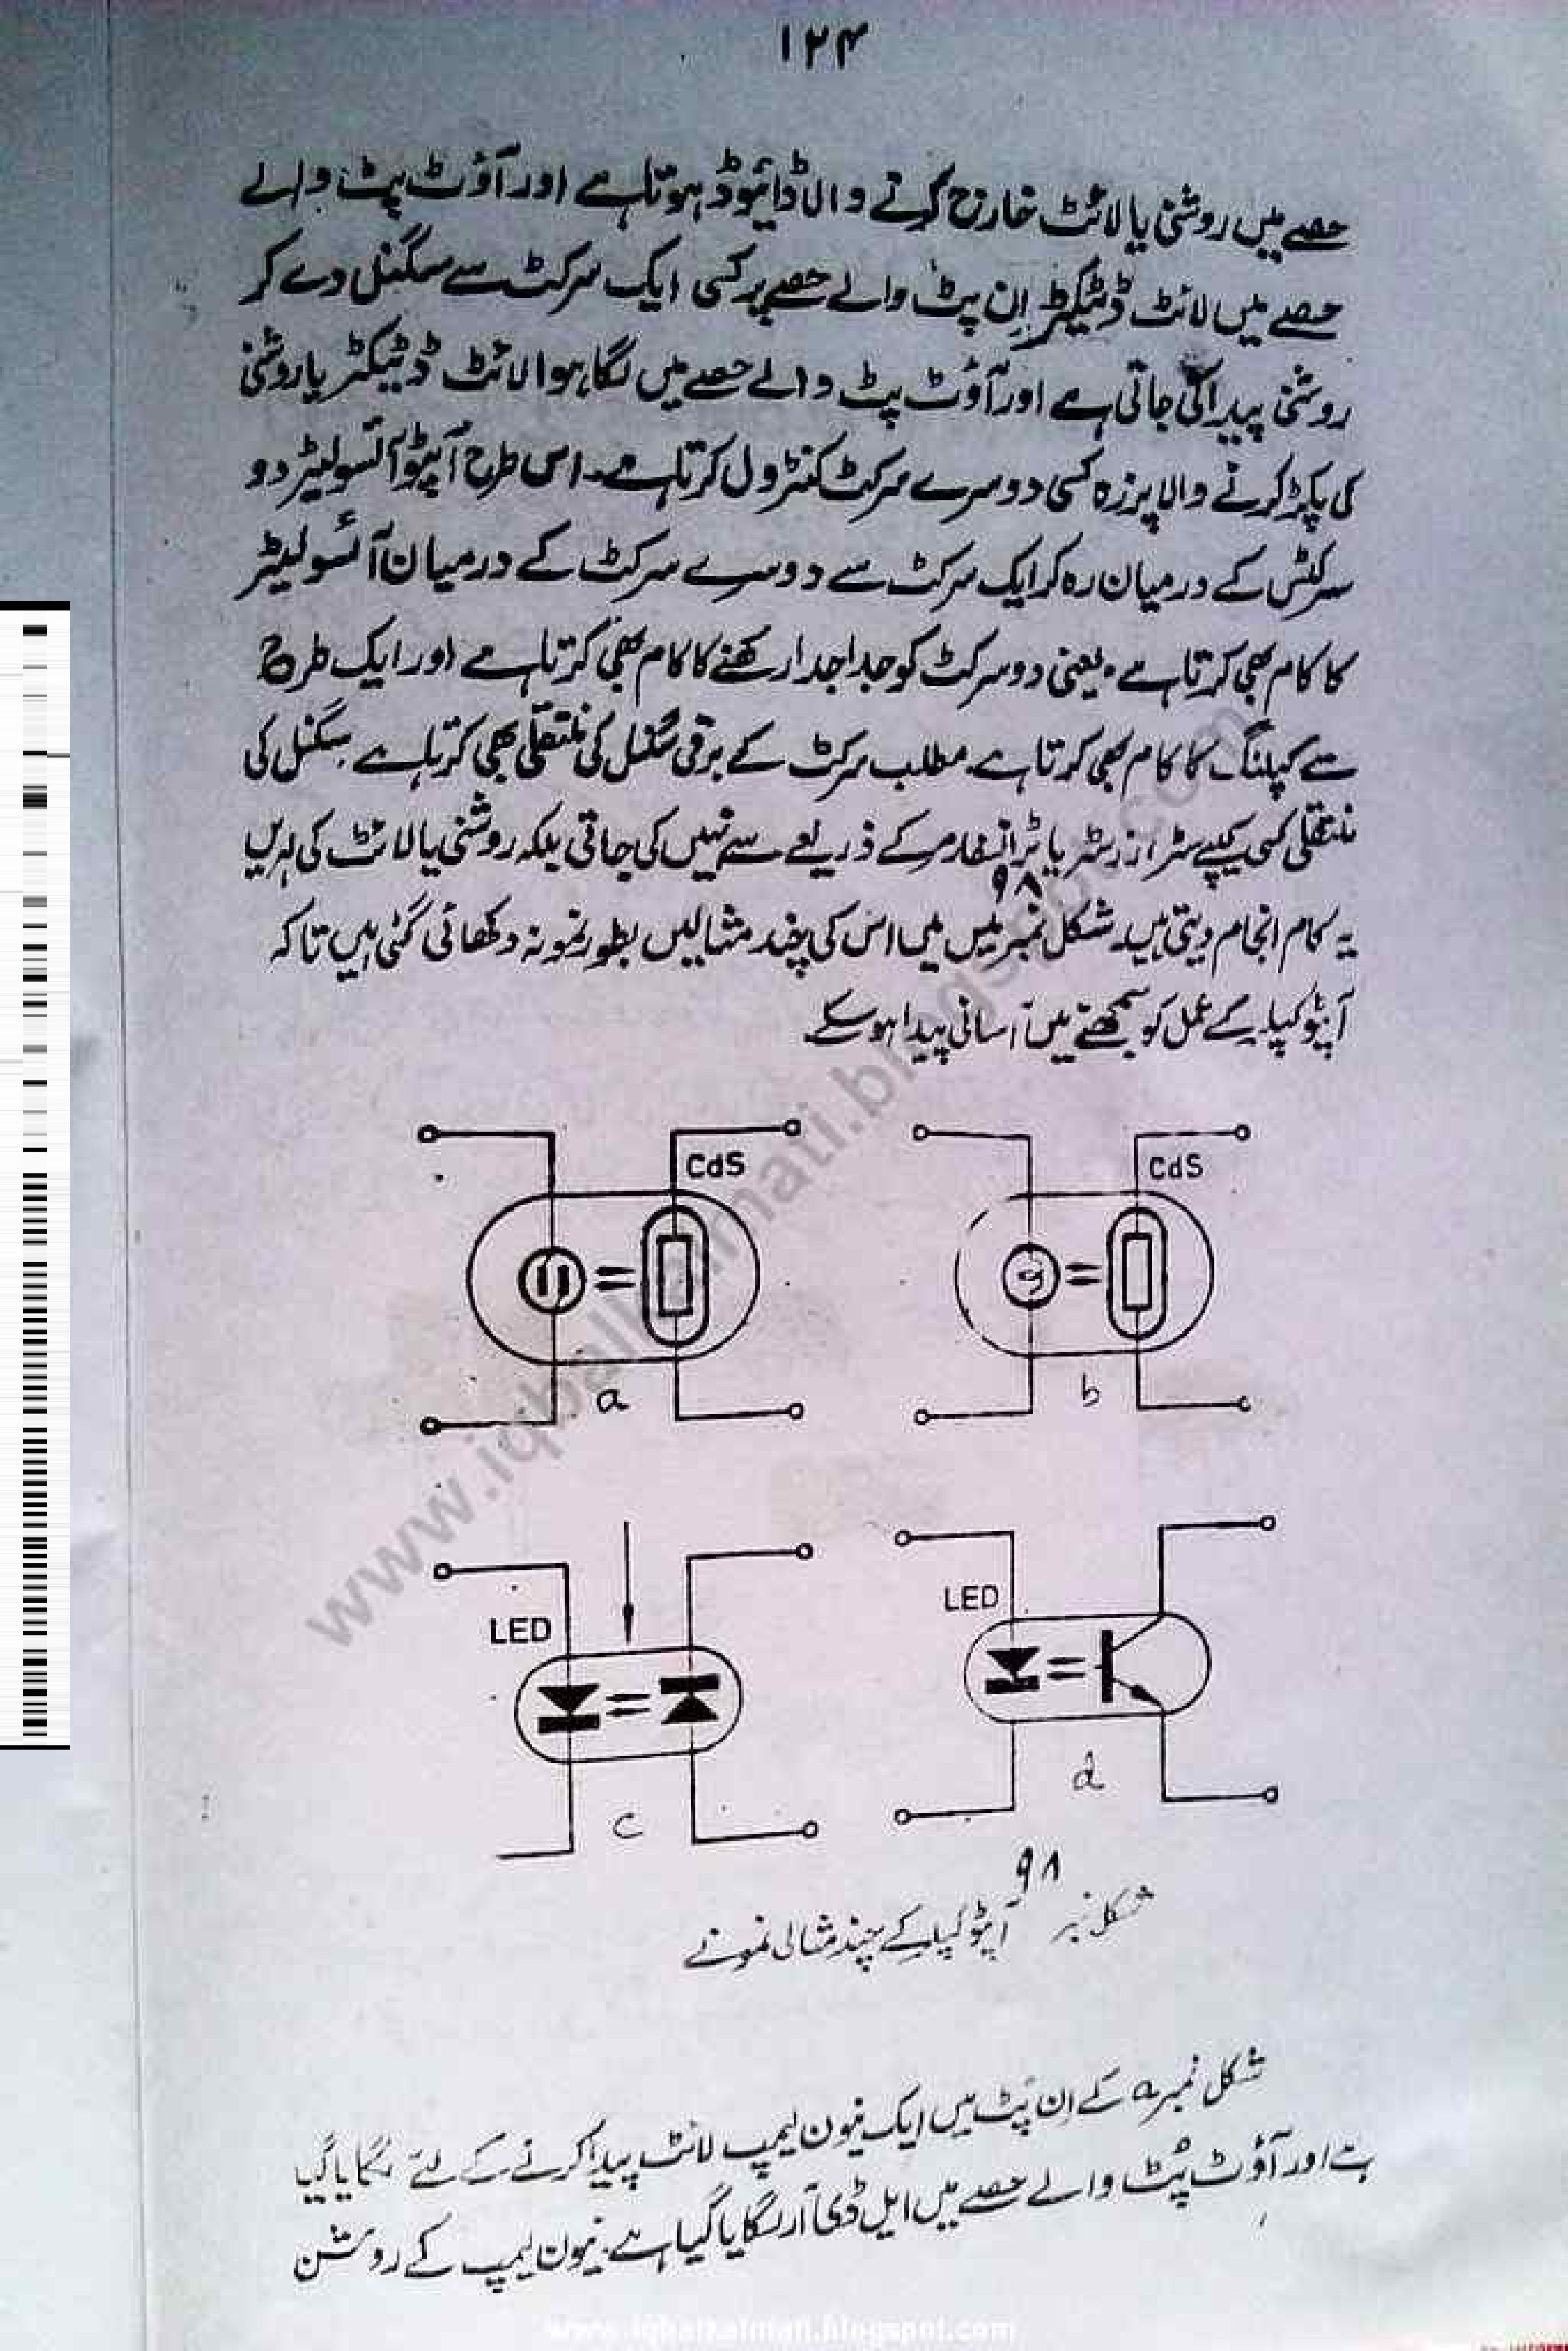 ۱۲۴
حصے میں روشنی یا لائٹ خارج کرنے والا ڈائیوڈ ہوتا ہے اور آؤٹ پٹ والے
حصے میں لائٹ ڈٹیکٹر اِن پٹ والے حصے پر کسی ایک سرکٹ سے سگنل دے کر
روشنی پیدا کی جاتی ہے اور آؤٹ پٹ والے حصے میں لگا ہوا لائٹ ڈٹیکٹر یا روشنی
کی پکڑ کرنے والا پرزہ کسی دوسرے سرکٹ کنٹرول کرتا ہے۔ اس طرح آپٹو آئسولیٹر دو
سرکٹس کے درمیان رہ کر ایک سرکٹ سے دوسرے سرکٹ کے درمیان آئسولیٹر
کا کام بھی کرتا ہے۔ یعنی دو سرکٹ کو جدا جدا رکھنے کا کام بھی کرتا ہے اور ایک طرح
سے کپلنگ کا کام بھی کرتا ہے۔ مطلب سرکٹ کے برقی سگنل کی منتقلی بھی کرتا ہے۔ سگنل کی
منتقلی کسی کیپے سٹر از رسٹر یا ٹرانسفارمر کے ذریعے سے نہیں کی جاتی بلکہ روشنی یا لائٹ کی لہریں
یہ کام انجام دیتی ہیں۔ شکل نمبر ۹۸ میں میں اس کی چند مثالیں بطور نمونہ دکھائی گئی ہیں تاکہ
آپٹو کپلر کے عمل کو سمجھنے میں آسانی پیدا ہو سکے۔
CdS
CdS
a
b
LED
LED
c
d
شکل نمبر ۹۸ آپٹو کپلر کے چند مثالی نمونے
شکل نمبر a کے اِن پٹ میں ایک نیون لیمپ لائٹ پیدا کرنے کے لئے لگایا گیا
ہے اور آؤٹ پُٹ والے حصے میں ایل ڈی آر لگایا گیا ہے۔ نیون لیمپ کے روشن
www.iqbalkalmati.blogspot.com
www.iqbalkalmati.blogspot.com